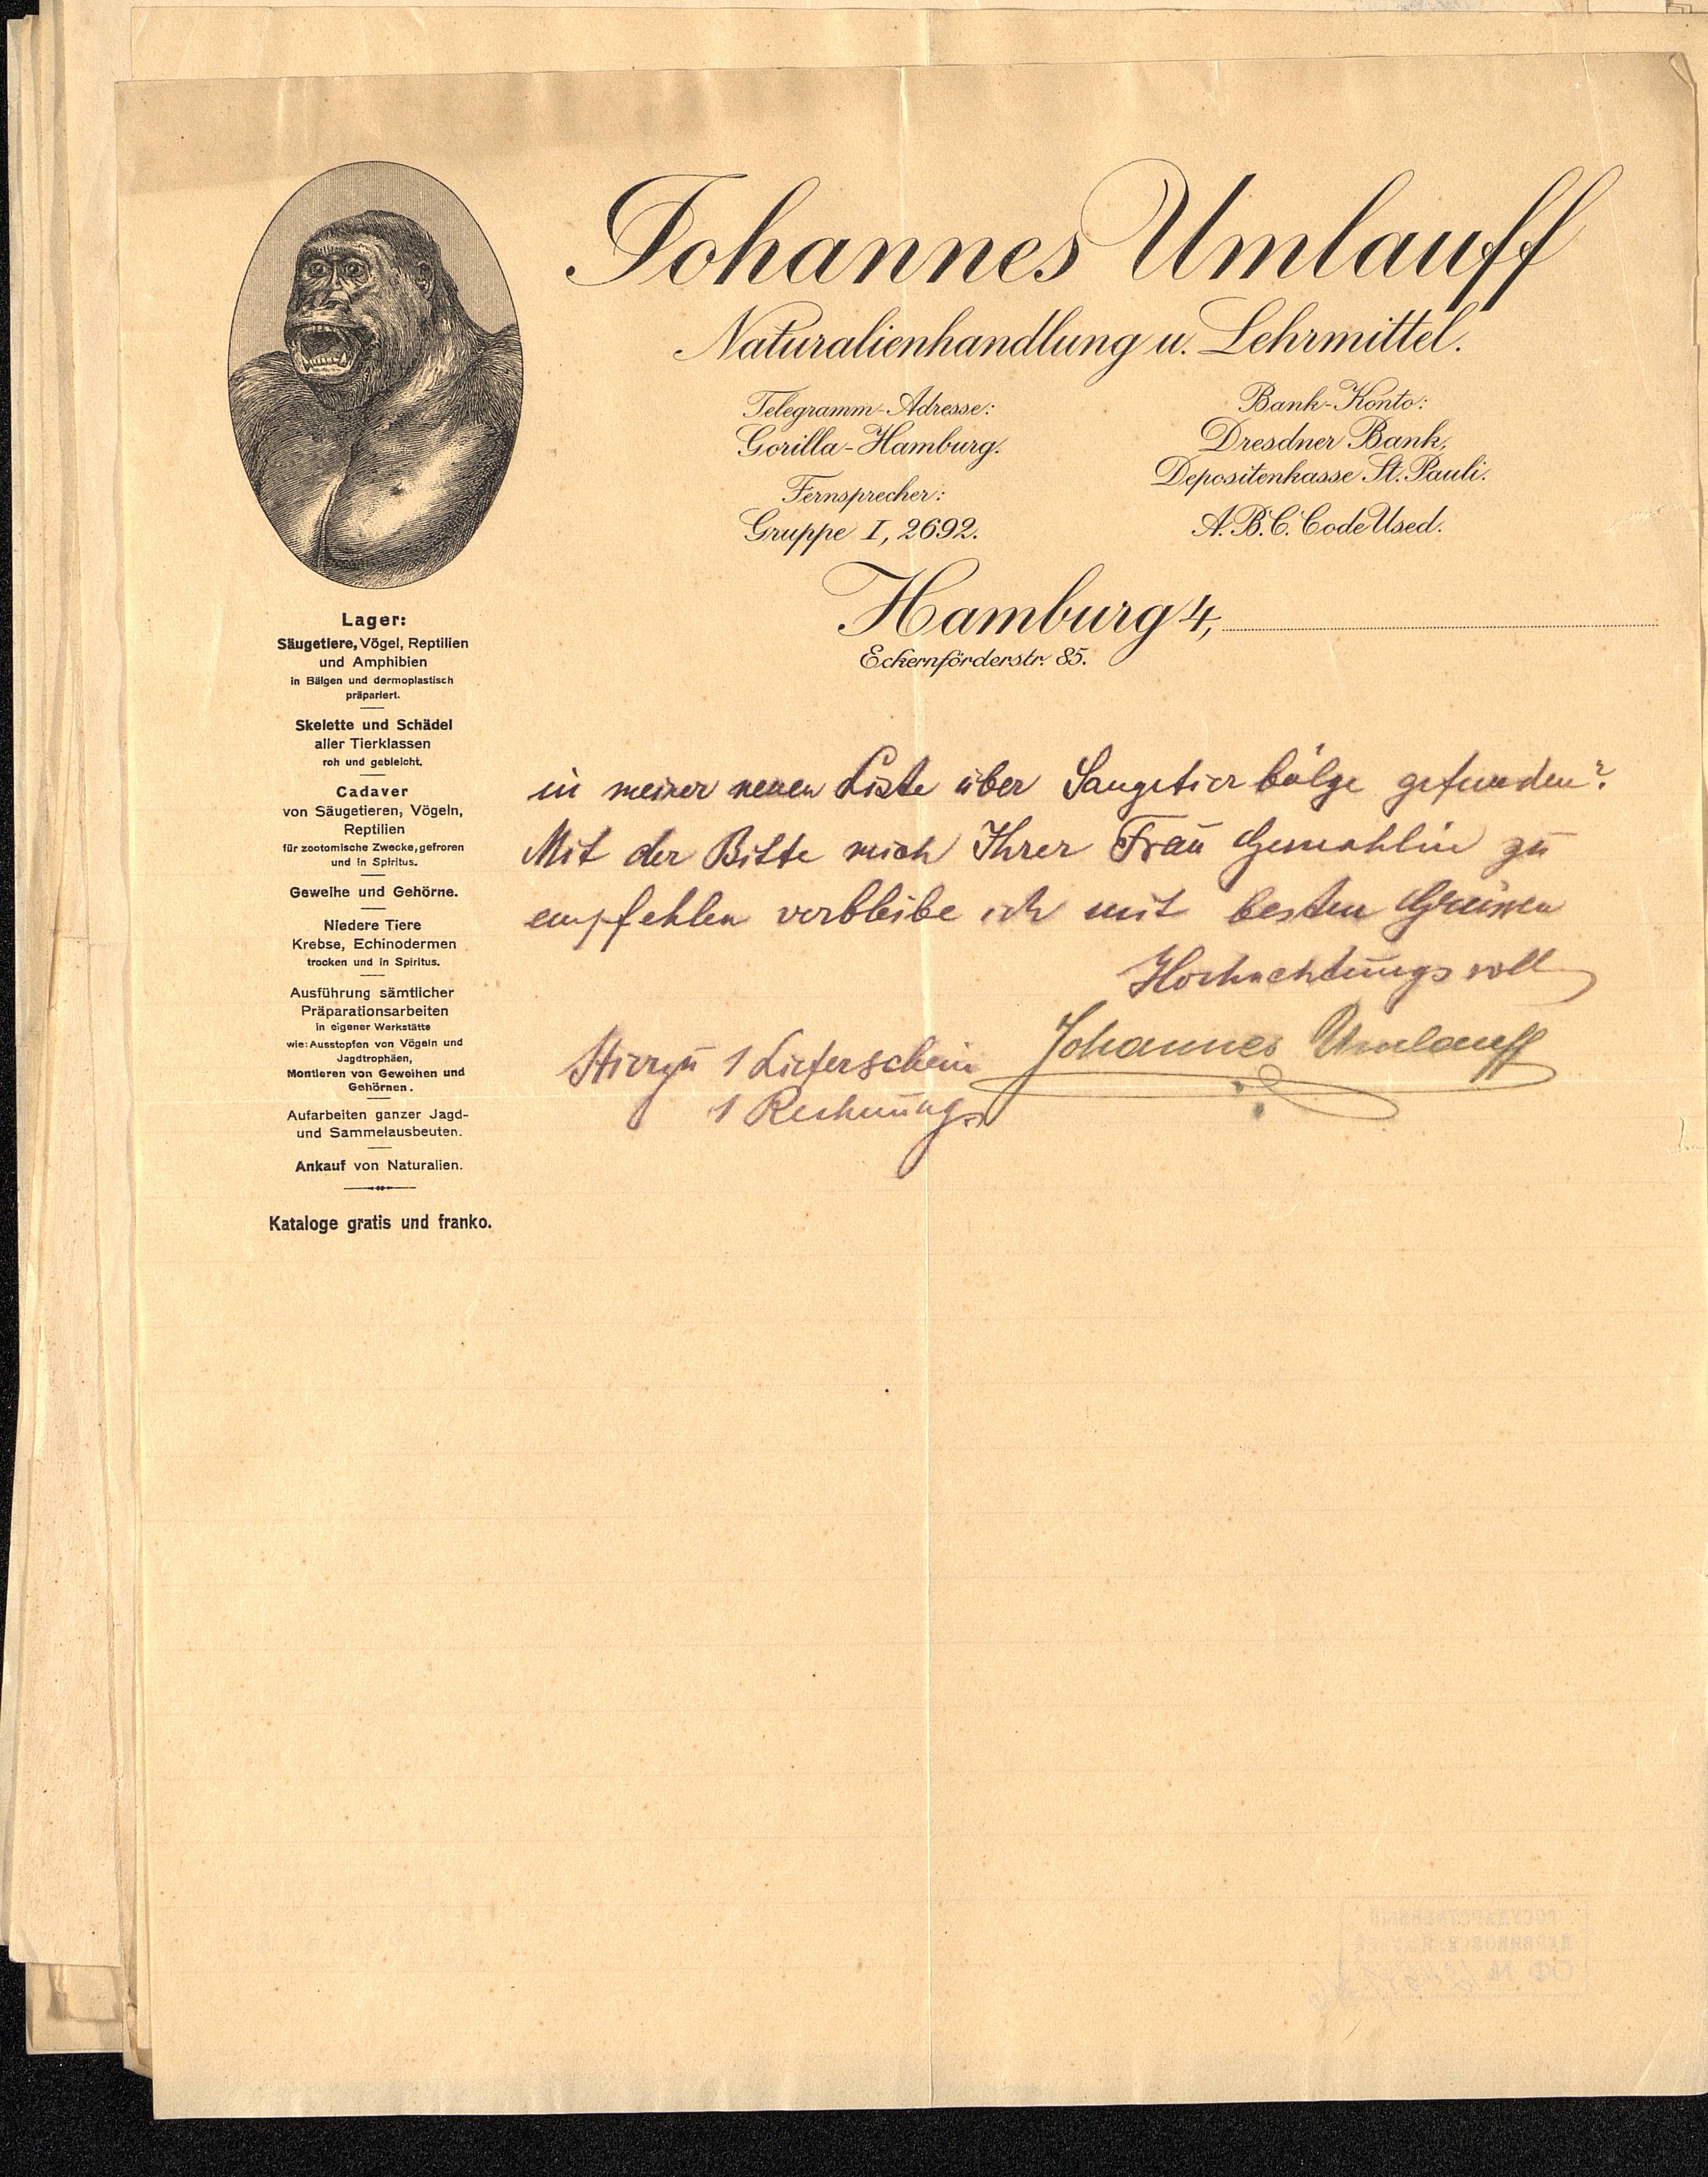 Johannes Umlauff
Naturalienhandlung u. Lehrmittel.
Telegramm-Adresse:
Gorilla-Hamburg.
Fernsprecher:
Gruppe I, 2692.
Bank-Konto:
Dresdner Bank,
Depositenkasse St. Pauli.
A.B.C. Code Used.
Hamburg 4,
Eckernförderstr. 85.
Lager:
Säugetiere, Vögel, Reptilien
und Amphibien
in Bälgen und dermoplastisch
präpariert.
Skelette und Schädel
aller Tierklassen
roh und gebleicht.
Cadaver
von Säugetieren, Vögeln,
Reptilien
für zootomische Zwecke, gefroren
und in Spiritus.
Geweihe und Gehörne.
Niedere Tiere
Krebse, Echinodermen
trocken und in Spiritus.
Ausführung sämtlicher
Präparationsarbeiten
in eigener Werkstätte
wie: Ausstopfen von Vögeln und
Jagdtrophäen,
Montieren von Geweihen und
Gehörnen.
Aufarbeiten ganzer Jagd-
und Sammelausbeuten.
Ankauf von Naturalien.
Kataloge gratis und franko.
in meiner neuen Liste über Saugetierbälge gefunden?
Mit der Bitte mich Ihrer Frau Gemahlin zu
empfehlen verbleibe ich mit besten Grüssen
Hochachtungsvoll
Johannes Umlauff
Hierzu 1 Lieferschein
1 Rechnung.